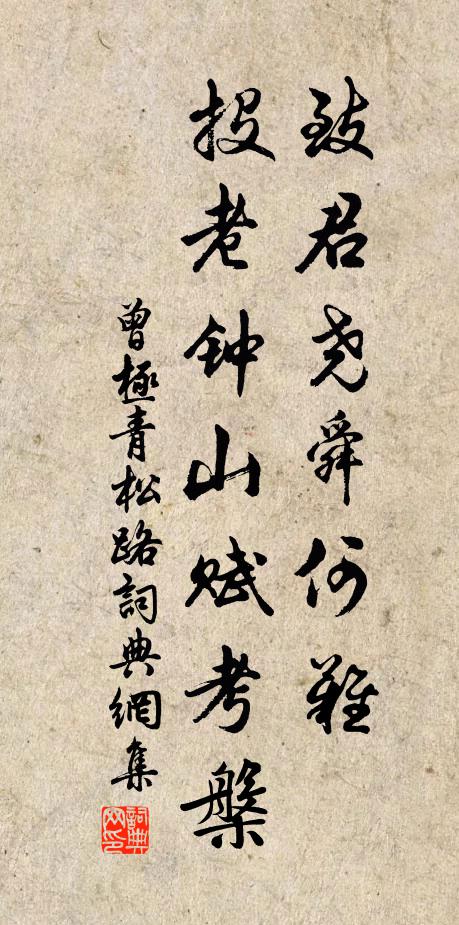 致君尧舜何难
投老钟山赋考槃
曾極青松路詞典網集
詞典网印